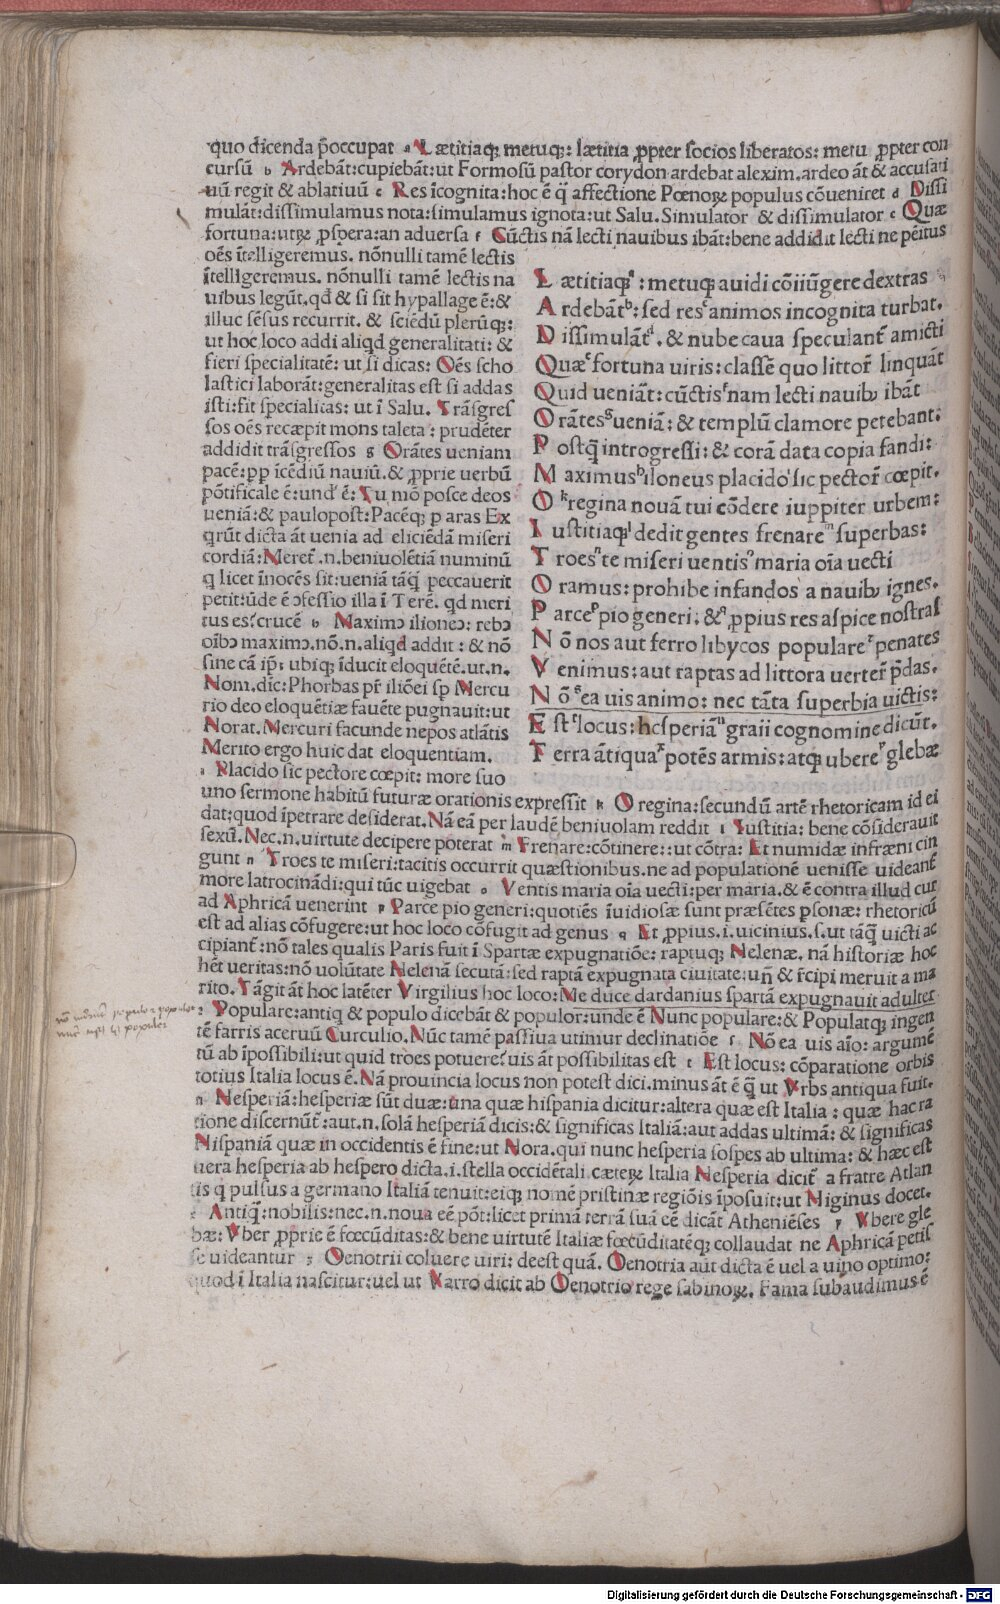 quo dicenda p̄occupat a Lætitiaqꝫ metuqꝫ: lætitia ꝓpter socios liberatos: metu ꝓpter con
cursū b Ardebāt: cupiebāt: ut Formosū pastor corydon ardebat alexim. ardeo āt & accusati
uū regit & ablatiuū c Res īcognita: hoc ē q̄ affectione Pœnoꝝ populus cōueniret d Dissi
mulāt: dissimulamus nota: simulamus ignota: ut Salu. Simulator & dissimulator e Quæ
fortuna: utꝝ ꝓspera: an aduersa f Cūctis nā lecti nauibus ibāt: bene addidit lecti ne pēitus
oēs ītelligeremus. nōnulli tamē lectis
ītelligeremus. nōnulli tamē lectis na
uibus legūt. qd̄ & si sit hypallage ē: &
illuc sēsus recurrit. & sciēdū plerūqꝫ:
ut hoc loco addi aliqd generalitati: &
fieri specialitatē: ut si dicas: Oēs scho
lastici laborāt: generalitas est si addas
isti: fit specialitas: ut ī Salu. Trāsgres
sos oēs recæpit mons taleta: prudēter
addidit trāsgressos g Orātes ueniam
pacē: ꝓꝑ īcēdiū nauiū. & ꝓprie uerbū
pōtificale ē: und ē: Tu mō posce deos
ueniā: & paulopost: Pacēqꝫ ꝑ aras Ex
qrūt dicta āt uenia ad eliciēdā miseri
cordiā: Meret̄ .n. beniuolētiā numinū
q licet īnocēs sit: ueniā tāq̄ peccauerit
petit: ūde ē ꝯfessio illa ī Terē. qd meri
tus es? crucē h Maximꝰ ilioneꝰ: rebꝰ
oībꝰ maximꝰ. nō. n. aliqd addit: & nō
sine cā ip̄: ubiqꝫ īducit eloquētē. ut. n.
Nom. dīc: Phorbas pr̄ iliōei sp̄ Mercu
rio deo eloquētiæ fauēte pugnauit: ut
Norat. Mercuri facunde nepos atlātis
Merito ergo huic dat eloquentiam.
i Placido sic pectore cœpit: more suo
Lætitiaqꝫ: metuqꝫ auidi cōiiūgere dextras
Ardebāt: sed res animos incognita turbat.
Dissimulāt. & nube caua speculant̄ amicti
Quæ fortuna uiris: classē quo littor̄ linquāt
Quid ueniāt: cūctis nam lecti nauibꝫ ibāt
Orātes ueniā: & templū clamore petebant:
Postq̄ introgressi: & corā data copia fandi:
Maximus iloneus placido sic pector̄ cœpit.
O regina nouā tui cōdere iuppiter urbem:
Iustitiaqꝫ dedit gentes frenare superbas:
Troes te miseri uentis maria oīa uecti
Oramus: prohibe infandos a nauibꝫ ignes.
Parce pio generi: & ꝓpius res aspice nostras
Nō nos aut ferro libycos populare penates
Venimus: aut raptas ad littora uerter̄ p̄das.
Nō ea uis animo: nec tāta superbia uictis:
Est locus: hesperiā graii cognomine dicūt.
Terra ātiqua potēs armis: atqꝫ ubere glebæ
uno sermone habitū futuræ orationis expressit k O regina: secundū artē rhetoricam id ei
dat: quod īpetrare desiderat. Nā eā per laudē beniuolam reddit l Iustitia: bene cōsiderauit
sexū. Nec. n. uirtute decipere poterat m Frenare: cōtinere: : ut cōtra: Et numidæ infræni cin
gunt n Troes te miseri: tacitis occurrit quæstionibus. ne ad populationē uenisse uideant̄
more latrocinādi: qui tūc uigebat o Ventis maria oīa uecti: per maria. & ē contra illud cur
ad Aphricā uenerint p Parce pio generi: quotiēs īuidiosæ sunt præsētes ꝑsonæ: rhetoricū
est ad alias cōfugere: ut hoc loco cōfugit ad genus q Et ꝓpius. i. uicinius. s. ut tāq̄ uicti ac
cipiant̄: nō tales qualis Paris fuit ī Spartæ expugnatiōe: raptuqꝫ Nelenæ. nā historiæ hoc
hēt ueritas: nō uolūtate Nelenā secutā: sed raptā expugnata ciuitate: uñ & r̄cipi meruit a ma
rito. Tāgit āt hoc latēter Virgilius hoc loco: Me duce dardanius spartā expugnauit adulter
r Populare: antiq & populo dicebāt & populor: unde ē Nunc populare: & Populatqꝫ ingen
tē farris aceruū Curculio. Nūc tamē passiua utimur declinatiōe s Nō ea uis aīo: argumē
tū ab īpossibili: ut quid troes potuere? uis āt possibilitas est t Est locus: cōparatione orbis
totius Italia locus ē. Nā prouincia locus non potest dici. minus āt ē q̄ ut Vrbs antiqua fuit.
u Nesperiā: hesperiæ sūt duæ: una quæ hispania dicitur: altera quæ est Italia: quæ hac ra
tione discernūt̄: aut. n. solā hesperiā dicis: & significas Italiā: aut addas ultimā: & significas
Nispaniā quæ in occidentis ē fine: ut Nora. qui nunc hesperia sospes ab ultima: & hæc est
uera hesperia ab hespero dicta. i. stella occidētali. cæteꝝ Italia Nesperia dicit̄ a fratre Atlan
tis q pulsus a germano Italiā tenuit: eiqꝫ nomē pristinæ regiōis īposuit: ut Niginus docet.
x Antiq̄: nobilis: nec. n. noua eē pōt: licet primā terrā suā eē dicāt Atheniēses y Vbere gle
bæ: Vber ꝓprie ē fœcūditas: & bene uirtutē Italiæ fœcūditatēqꝫ collaudat ne Aphricā petis
se uideantur z Oenotrii coluere uiri: deest quā. Oenotria aut dicta ē uel a uino optimo:
quod ī Italia nascitur: uel ut Varro dicit ab Oenotrio rege sabinoꝝ. Fama subaudimus ē
Digitalisierung gefördert durch die Deutsche Forschungsgemeinschaft - DFG